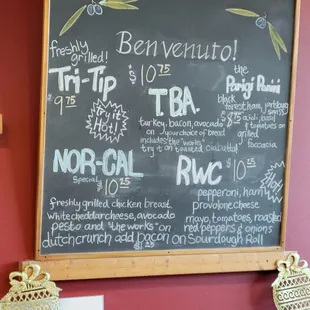 Benvenuto!
freshly
grilled!
Tri-Tip
$9.75
Try it
Hot!
$10.75
T.B.A.
turkey, bacon, avocado
on your choice of bread
includes the "works"
try it on toasted ciabatta!
the
Parigi Panini
black
forest ham,
$8.75
tomatoes on
grilled
foccacia
NOR-CAL
Special $10.25
freshly grilled chicken breast,
white cheddar cheese, avocado
pesto and "the works" on
dutchcrunch add bacon $1.25
RWC $10.25
pepperoni, ham,
provolone cheese
mayo, tomatoes, roasted
red peppers & onions
on Sourdough Roll